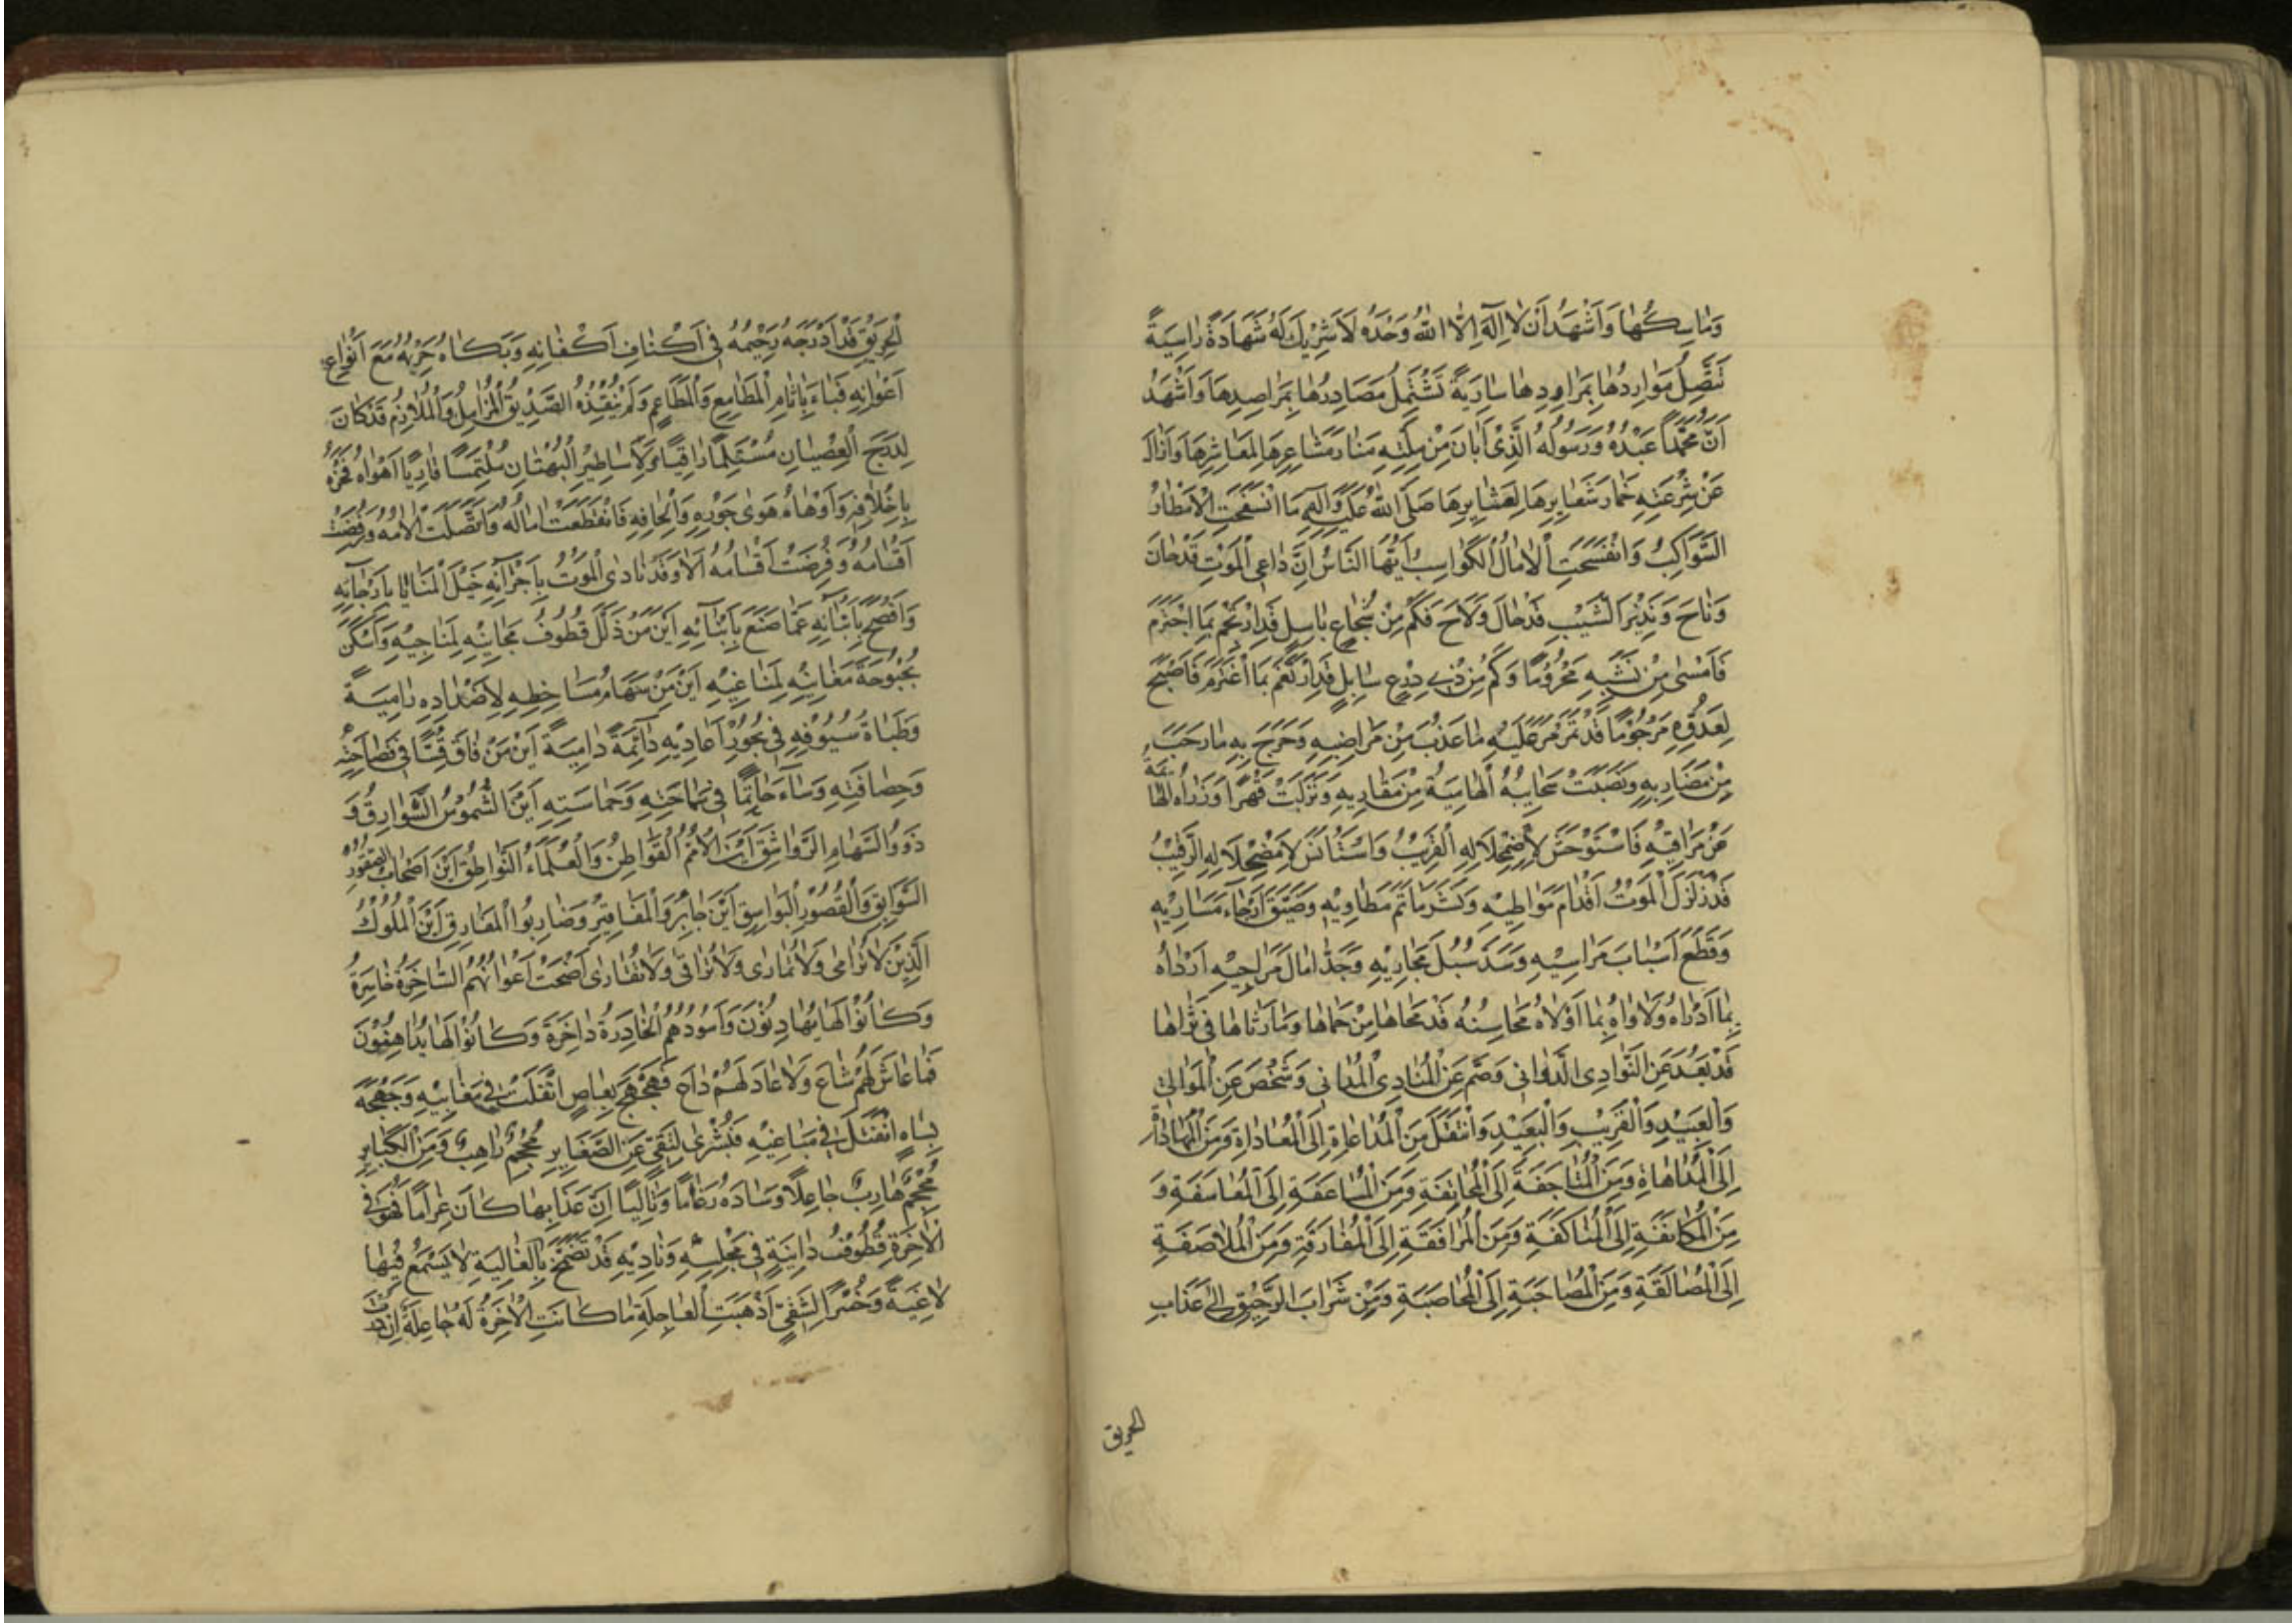 وَمَاسِكُهَا وَاَشْهَدُ اَنْ لَا اِلٰهَ اِلَّا اللهُ وَحْدَهُ لَا شَرِيْكَ لَهُ شَهَادَةً رَاسِيَةً
تَتَّصِلُ مَوَارِدُهَا بِمَرَاوِدِهَا سَارِيَةً تَشْتَمِلُ مَصَادِرُهَا بِمَرَاصِدِهَا وَاَشْهَدُ
اَنَّ مُحَمَّداً عَبْدُهُ وَرَسُولُهُ الَّذِىْ اَبَانَ مِنْ مِلَّتِهِ مَنَارَ مَشَاعِرِهَا لِمَعَاشِرِهَا وَاَزَالَ
عَنْ شِرْعَتِهِ خِمَارَ شَعَايِرِهَا لِعَشَايِرِهَا صَلَّى اللهُ عَلَيْهِ وَآلِهِ مَا انْسَفَحَتِ الْاَمْطَارُ
السَّوَاكِبُ وَانْفَسَحَتِ الْاٰمَالُ الْكَوَاسِبُ اَيُّهَا النَّاسُ اِنَّ دَاعِى الْمَوْتِ قَدْ حَانَ
وَنَاحَ وَنَذِيْرَ الشَّيْبِ قَدْ حَالَ وَلَاحَ فَكَمْ مِنْ شُجَاعٍ بَاسِلٍ قَدِ بِمَا اجْتَرَمَ
فَاَمْسٰى مِنْ نَشَبِهِ مَحْرُوْمًا وَكَمْ مِنْ ذِىْ دِرْعٍ سَابِلٍ قَدِ بِمَا فَاَصْبَحَ
لِعَدُوِّهِ مَرْحُوْمًا قَدْ تَمَرْمَرَ عَلَيْهِ مَا عَذُبَ مِنْ مَرَاضِيْهِ وَحَرِجَ بِهِ مَا رَحُبَ
مِنْ مَضَارِبِهِ وَنَضَبَتْ سَحَايِبُهُ الْهَامِيَةُ مِنْ مَقَارِيهِ وَتَرَكَتْ قَهْرًا وُزَرَاؤُهُ
عَنْ مَرَاقِيْهِ فَاسْتَوْحَشَ لِاضْمِحْلَالِهِ الْقَرِيْبُ وَاسْتَأْنَسَ لِامْضِحْلَالِهِ الرَّقِيْبُ
قَدْ زَلْزَلَ الْمَوْتُ اَقْدَامَ مَوَاطِيْهِ وَكَثَّرَ مَآتِمَ مَطَاوِيْهِ وَضَيَّقَ اَرْجَاءَ مَسَارِيْهِ
وَقَطَعَ اَسْبَابَ مَرَاسِيْهِ وَسَدَّ سُبُلَ مَجَارِيْهِ وَجَذَّ اٰمَالَ مَرَاجِيْهِ اَرْدَاهُ
بِمَا اَدْرَاهُ وَلَاوَاهُ بِمَا اَوْلَاهُ مَحَاسِنُهُ قَدْ مَحَاهَا مِنْ حِمَاهَا وَمَا رَثَاهَا فِى ثَرَاهَا
قَدْ بَعُدَ عَنِ النَّوَادِى الدَّوَانِى وَصَمَّ عَنِ الْمُنَادِى الْمُدَانِى وَشَخَصَ عَنِ الْمَوَالِىْ
وَالْعَبِيْدِ وَالْقَرِيْبِ وَالْبَعِيْدِ وَانْتَقَلَ مِنَ الْمُدَاعَاةِ اِلَى الْمُعَادَاةِ وَمِنَ الْمُهَادَاةِ
اِلَى الْمُدَاهَاةِ وَمِنَ اِلَى الْمُجَانَفَةِ وَمِنَ الْمُسَاعَفَةِ اِلَى الْمُعَاسَفَةِ وَ
مِنَ الْمُكَانَفَةِ اِلَى الْمُنَاكَفَةِ وَمِنَ الْمُرَافَقَةِ اِلَى الْمُفَارَقَةِ وَمِنَ الْمُلَاصَفَةِ
اِلَى الْمُصَالَقَةِ وَمِنَ الْمُصَاحَبَةِ اِلَى الْمُحَاصَبَةِ وَمِنْ شَرَابِ الرَّحِيْقِ اِلٰى عَذَابِ
الحريق
الْحَرِيْقِ قَدْ اَدْرَجَهُ رَحِيْمُهُ فِى اَكْنَافِ اَكْفَانِهِ وَبَكَاهُ حَرِيْمُهُ مَعَ اَنْوَاعِ
اَعْوَانِهِ فَبَاءَ بِاٰثَامِ الْمَطَامِعِ وَالْمَطَاعِمِ وَلَمْ يُنْقِذْهُ الصَّدِيْقُ الْمُزَامِلُ وَالْمُلَازِمُ قَدْ كَانَ
لِدَرَجِ الْعِصْيَانِ مُسْتَلِمًا رَاقِيًا وَلِاَسَاطِيْرِ الْبُهْتَانِ مُلْتَمِسًا قَارِيًا اَهْوَاهُ فَخْرُهُ
بِاِخْلَافِهِ وَاَوْهَاهُ هَوٰى جَوْرِهِ وَاِلْحَافِهِ فَانْقَطَعَتْ اٰمَالُهُ وَاتَّصَلَتْ اٰلَامُهُ وَرُفِضَتْ
اَقْسَامُهُ وَفُرِضَتْ اَقْسَامُهُ اَلَا وَقَدْ نَادَى الْمَوْتُ بِاَجْرَآئِهِ خَيْلَ الْمَنَايَا بِاَرْجَآئِهِ
وَاَفْصَحَ بِاَنْبَآئِهِ عَمَّا صَنَعَ بِاَبْنَآئِهِ اَيْنَ مَنْ ذَلَّلَ قُطُوْفَ مَجَانِيْهِ لِمَنَاجِيْهِ وَاَسْكَنَ
بُحْبُوْحَةَ مَغَانِيْهِ لِمَنَاغِيْهِ اَيْنَ مَنْ سِهَامُ مَسَاخِطِهِ لِاَضْدَادِهِ رَامِيَةً
وَظُبَاةُ سُيُوْفِهِ فِى نُحُوْرِ اَعَادِيْهِ دَآئِمَةً دَامِيَةً اَيْنَ مَنْ فَاقَ قُسًّا فِى فَصَاحَتِهِ
وَحَصَافَتِهِ وَسَآءَ حَاتِمًا فِى سَمَاحَتِهِ وَحَمَاسَتِهِ اَيْنَ الشُّمُوْسُ الشَّوَارِقُ وَ
ذَوُو السِّهَامِ الرَّوَاشِقِ اَيْنَ الْاُمَمُ الْقَوَاطِنُ وَالْعُلَمَآءُ النَّوَاطِقُ اَيْنَ اَصْحَابُ
السَّوَابِقِ وَالْقُصُوْرِ الْبَوَاسِقِ اَيْنَ جَابِرُو الْمَفَاقِيْرِ وَضَارِبُوا الْمَفَارِقِ اَيْنَ الْمُلُوْكُ
الَّذِيْنَ لَا تُرَامٰى وَلَا تُمَارٰى وَلَا تُرَاقٰى وَلَا تُقَارٰى اَضْحَتْ اَعْوَانُهُمُ السَّاخِرَةُ خَاسِرَةً
وَكَانُوْا لَهَا يُهَادِنُوْنَ وَاُسُوْدُهُمُ الْخَادِرَةُ دَاخِرَةً وَكَانُوْا لَهَا يُدَاهِنُوْنَ
فَمَا عَاشَ لَهُمْ شَاعٍ وَلَا عَادَ لَهُمْ دَاعٍ فَهَجْهَجَ بِعَاصٍ انْفَلَتَ فِى مَعَايِبِهِ وَجَهْجَهَ
بِسَاهٍ انْفَتَلَ فِى مَبَاغِيْهِ فَبُشْرٰى لِتَقِىٍّ عَنِ الصَّغَايِرِ مُحْجِمٌ رَاهِبٌ وَمِنَ الْكَبَايِرِ
مُجْحِمٌ هَارِبٌ جَاعِلًا وِسَادَهُ رَغَامًا وَتَالِيًا اِنَّ عَذَابَهَا كَانَ غَرَامًا فَهُوَ فِى
الْاٰخِرَةِ قُطُوْفٌ دَانِيَةٌ فِى مَجْلِسِهِ وَنَادِيْهِ قَدْ تَضَمَّخَ بِالْغَالِيَةِ لَا يَسْمَعُ فِيْهَا
لَاغِيَةً وَخُسْرًا لِشَقِىٍّ اَذْهَبَتِ الْعَاجِلَةُ مَا كَانَتِ الْاٰخِرَةُ لَهُ جَاعِلَةً اِنْ